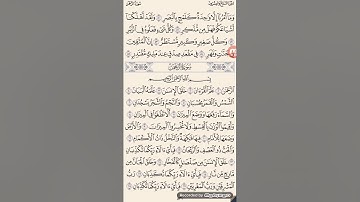 وَمَآ أَمْرُنَآ إِلَّا وَٰحِدَةٌ كَلَمْحٍۭ بِٱلْبَصَرِ ۝ وَلَقَدْ أَهْلَكْنَآ
أَشْيَاعَكُمْ فَهَلْ مِن مُّدَّكِرٍ ۝ وَكُلُّ شَىْءٍ فَعَلُوهُ فِى ٱلزُّبُرِ
۝ وَكُلُّ صَغِيرٍ وَكَبِيرٍ مُّسْتَطَرٌ ۝ إِنَّ ٱلْمُتَّقِينَ
فِى جَنَّٰتٍ وَنَهَرٍ ۝ فِى مَقْعَدِ صِدْقٍ عِندَ مَلِيكٍ مُّقْتَدِرٍۭ ۝
سُورَةُ الرَّحْمَٰن
بِسْمِ ٱللَّهِ ٱلرَّحْمَٰنِ ٱلرَّحِيمِ
ٱلرَّحْمَٰنُ ۝ عَلَّمَ ٱلْقُرْءَانَ ۝ خَلَقَ ٱلْإِنسَٰنَ ۝ عَلَّمَهُ ٱلْبَيَانَ ۝
ٱلشَّمْسُ وَٱلْقَمَرُ بِحُسْبَانٍ ۝ وَٱلنَّجْمُ وَٱلشَّجَرُ يَسْجُدَانِ ۝
وَٱلسَّمَآءَ رَفَعَهَا وَوَضَعَ ٱلْمِيزَانَ ۝ أَلَّا تَطْغَوْا۟ فِى ٱلْمِيزَانِ ۝
وَأَقِيمُوا۟ ٱلْوَزْنَ بِٱلْقِسْطِ وَلَا تُخْسِرُوا۟ ٱلْمِيزَانَ ۝ وَٱلْأَرْضَ
وَضَعَهَا لِلْأَنَامِ ۝ فِيهَا فَٰكِهَةٌ وَٱلنَّخْلُ ذَاتُ ٱلْأَكْمَامِ ۝
وَٱلْحَبُّ ذُو ٱلْعَصْفِ وَٱلرَّيْحَانُ ۝ فَبِأَىِّ ءَالَآءِ رَبِّكُمَا تُكَذِّبَانِ
۝ خَلَقَ ٱلْإِنسَٰنَ مِن صَلْصَٰلٍ كَٱلْفَخَّارِ ۝ وَخَلَقَ ٱلْجَآنَّ
مِن مَّارِجٍ مِّن نَّارٍ ۝ فَبِأَىِّ ءَالَآءِ رَبِّكُمَا تُكَذِّبَانِ ۝
رَبُّ ٱلْمَشْرِقَيْنِ وَرَبُّ ٱلْمَغْرِبَيْنِ ۝ فَبِأَىِّ ءَالَآءِ رَبِّكُمَا تُكَذِّبَانِ ۝
Recorded by